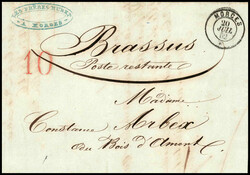 A MORGES
MORGES
20
JUIL
10
Brassus
Poste restante
Madame
Constance Arbex
du Bois d'Amont